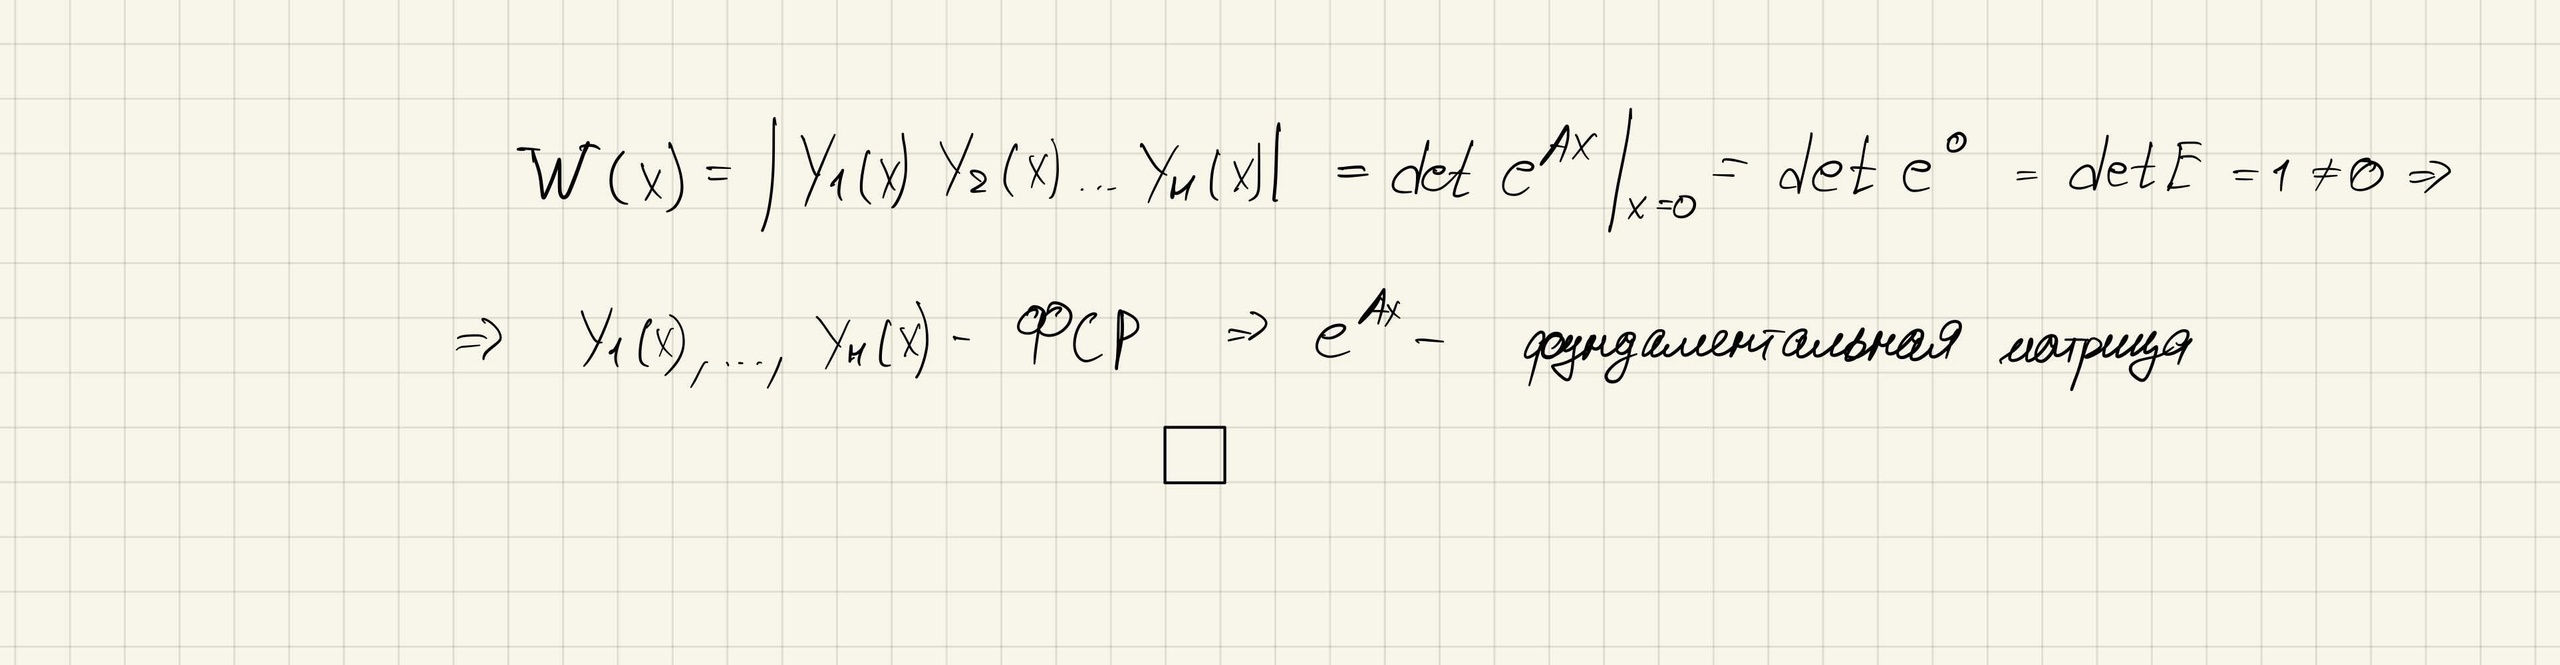 W(x) = | Y₁(x) Y₂(x) ... Yₙ(x) | = det e^{Ax} |_{x=0} = det e⁰ = det E = 1 ≠ 0 ⇒
⇒ Y₁(x), ..., Yₙ(x) - ФСР ⇒ e^{Ax} - фундаментальная матрица
□